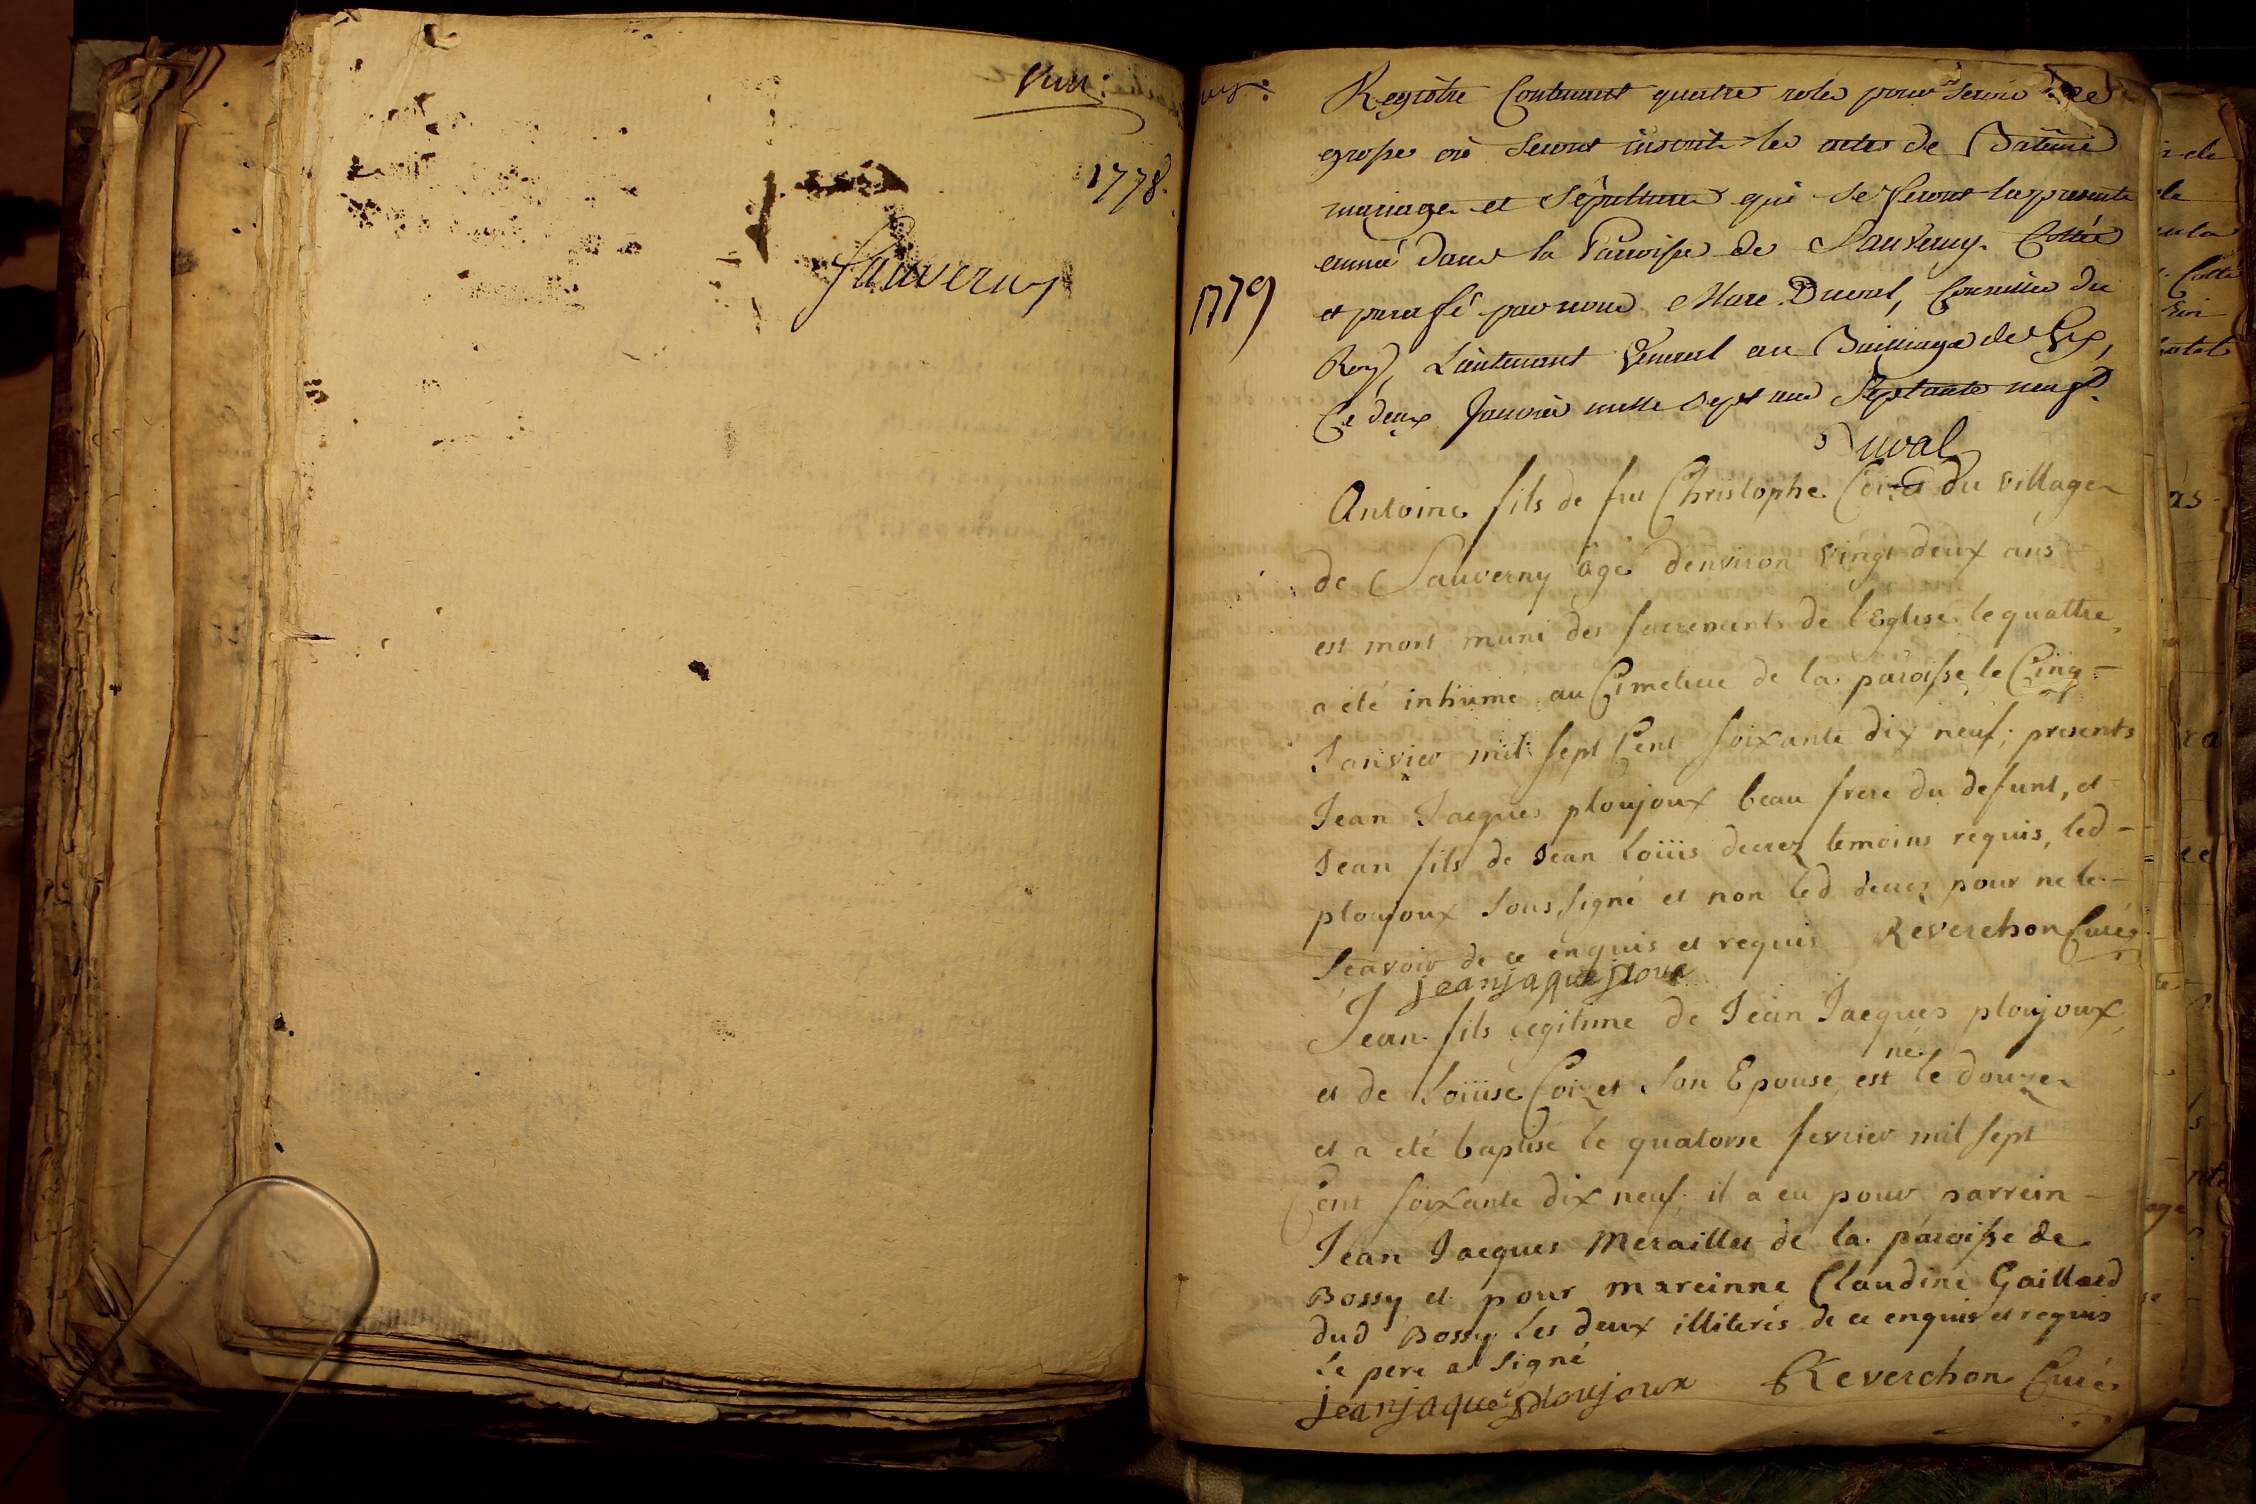 1778.
Sauverny
1779
Registre Contenant quatre roles pour servir de
grosse où seront inscrits les actes de Batême
mariage et Sépulture qui se feront la presente
année dans la Paroisse de Sauverny. Cottée
et paraffé par nous Marc Duval, Conseiller du
Roy, Lieutenant General au Bailliage de Gex,
Ce deux Janvier mille sept cent Septante neuf.
Duval
Antoine fils de feu Christophe Coizet du village
de Sauverny agé d'environ vingt deux ans
est mort muni des sacrements de l'Eglise le quattre,
a été inhumé au Cimetiere de la paroisse le Cinq
Janvier mil sept Cent soixante dix neuf; presents
Jean Jacques ploujoux beau frere du defunt, et
Jean fils de Jean Loüis decrez temoins requis, led
ploujoux soussigné et non led decrez pour ne le
sçavoir de ce enquis et requis Reverchon Curé
jeanjaque
Jean fils legitime de Jean Jacques ploujoux
né
et de Loüise Coizet son Epouse est le douze
et a eté baptisé le quatorse fevrier mil sept
Cent soixante dix neuf. il a eu pour parrein
Jean Jacques Meraillet de la paroisse de
Bossy et pour mareinne Claudine Gaillard
dud Bossy. les deux illiterés de ce enquis et requis
le pere a signé
jeanjaque Ploujoux Reverchon Curé